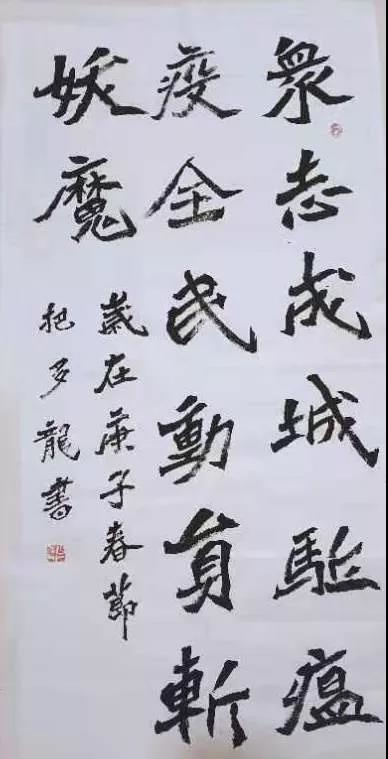 衆志成城駈瘟
疫全民動員斬
妖魔
歲在庚子春節
把多龍書